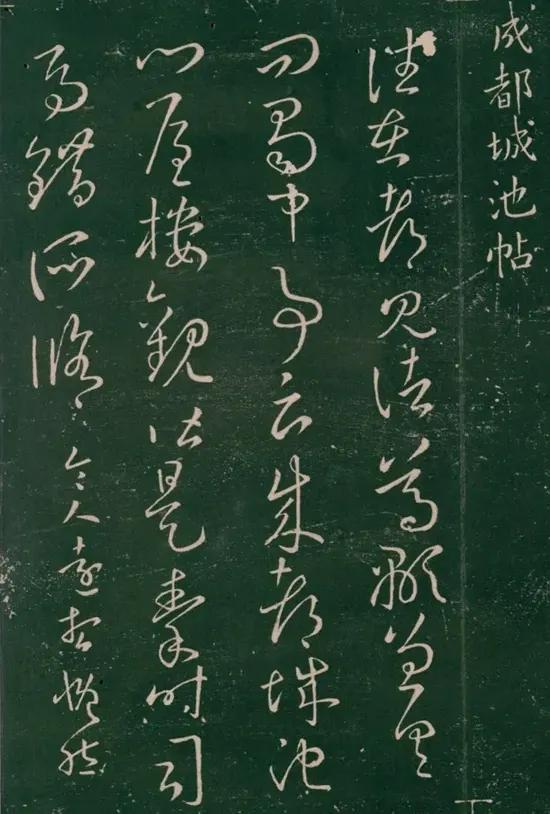 成都城池帖
往在都見諸葛顒曾具
問蜀中事云成都城池
門屋樓觀皆是秦時司
馬錯所脩令人遠想慨然